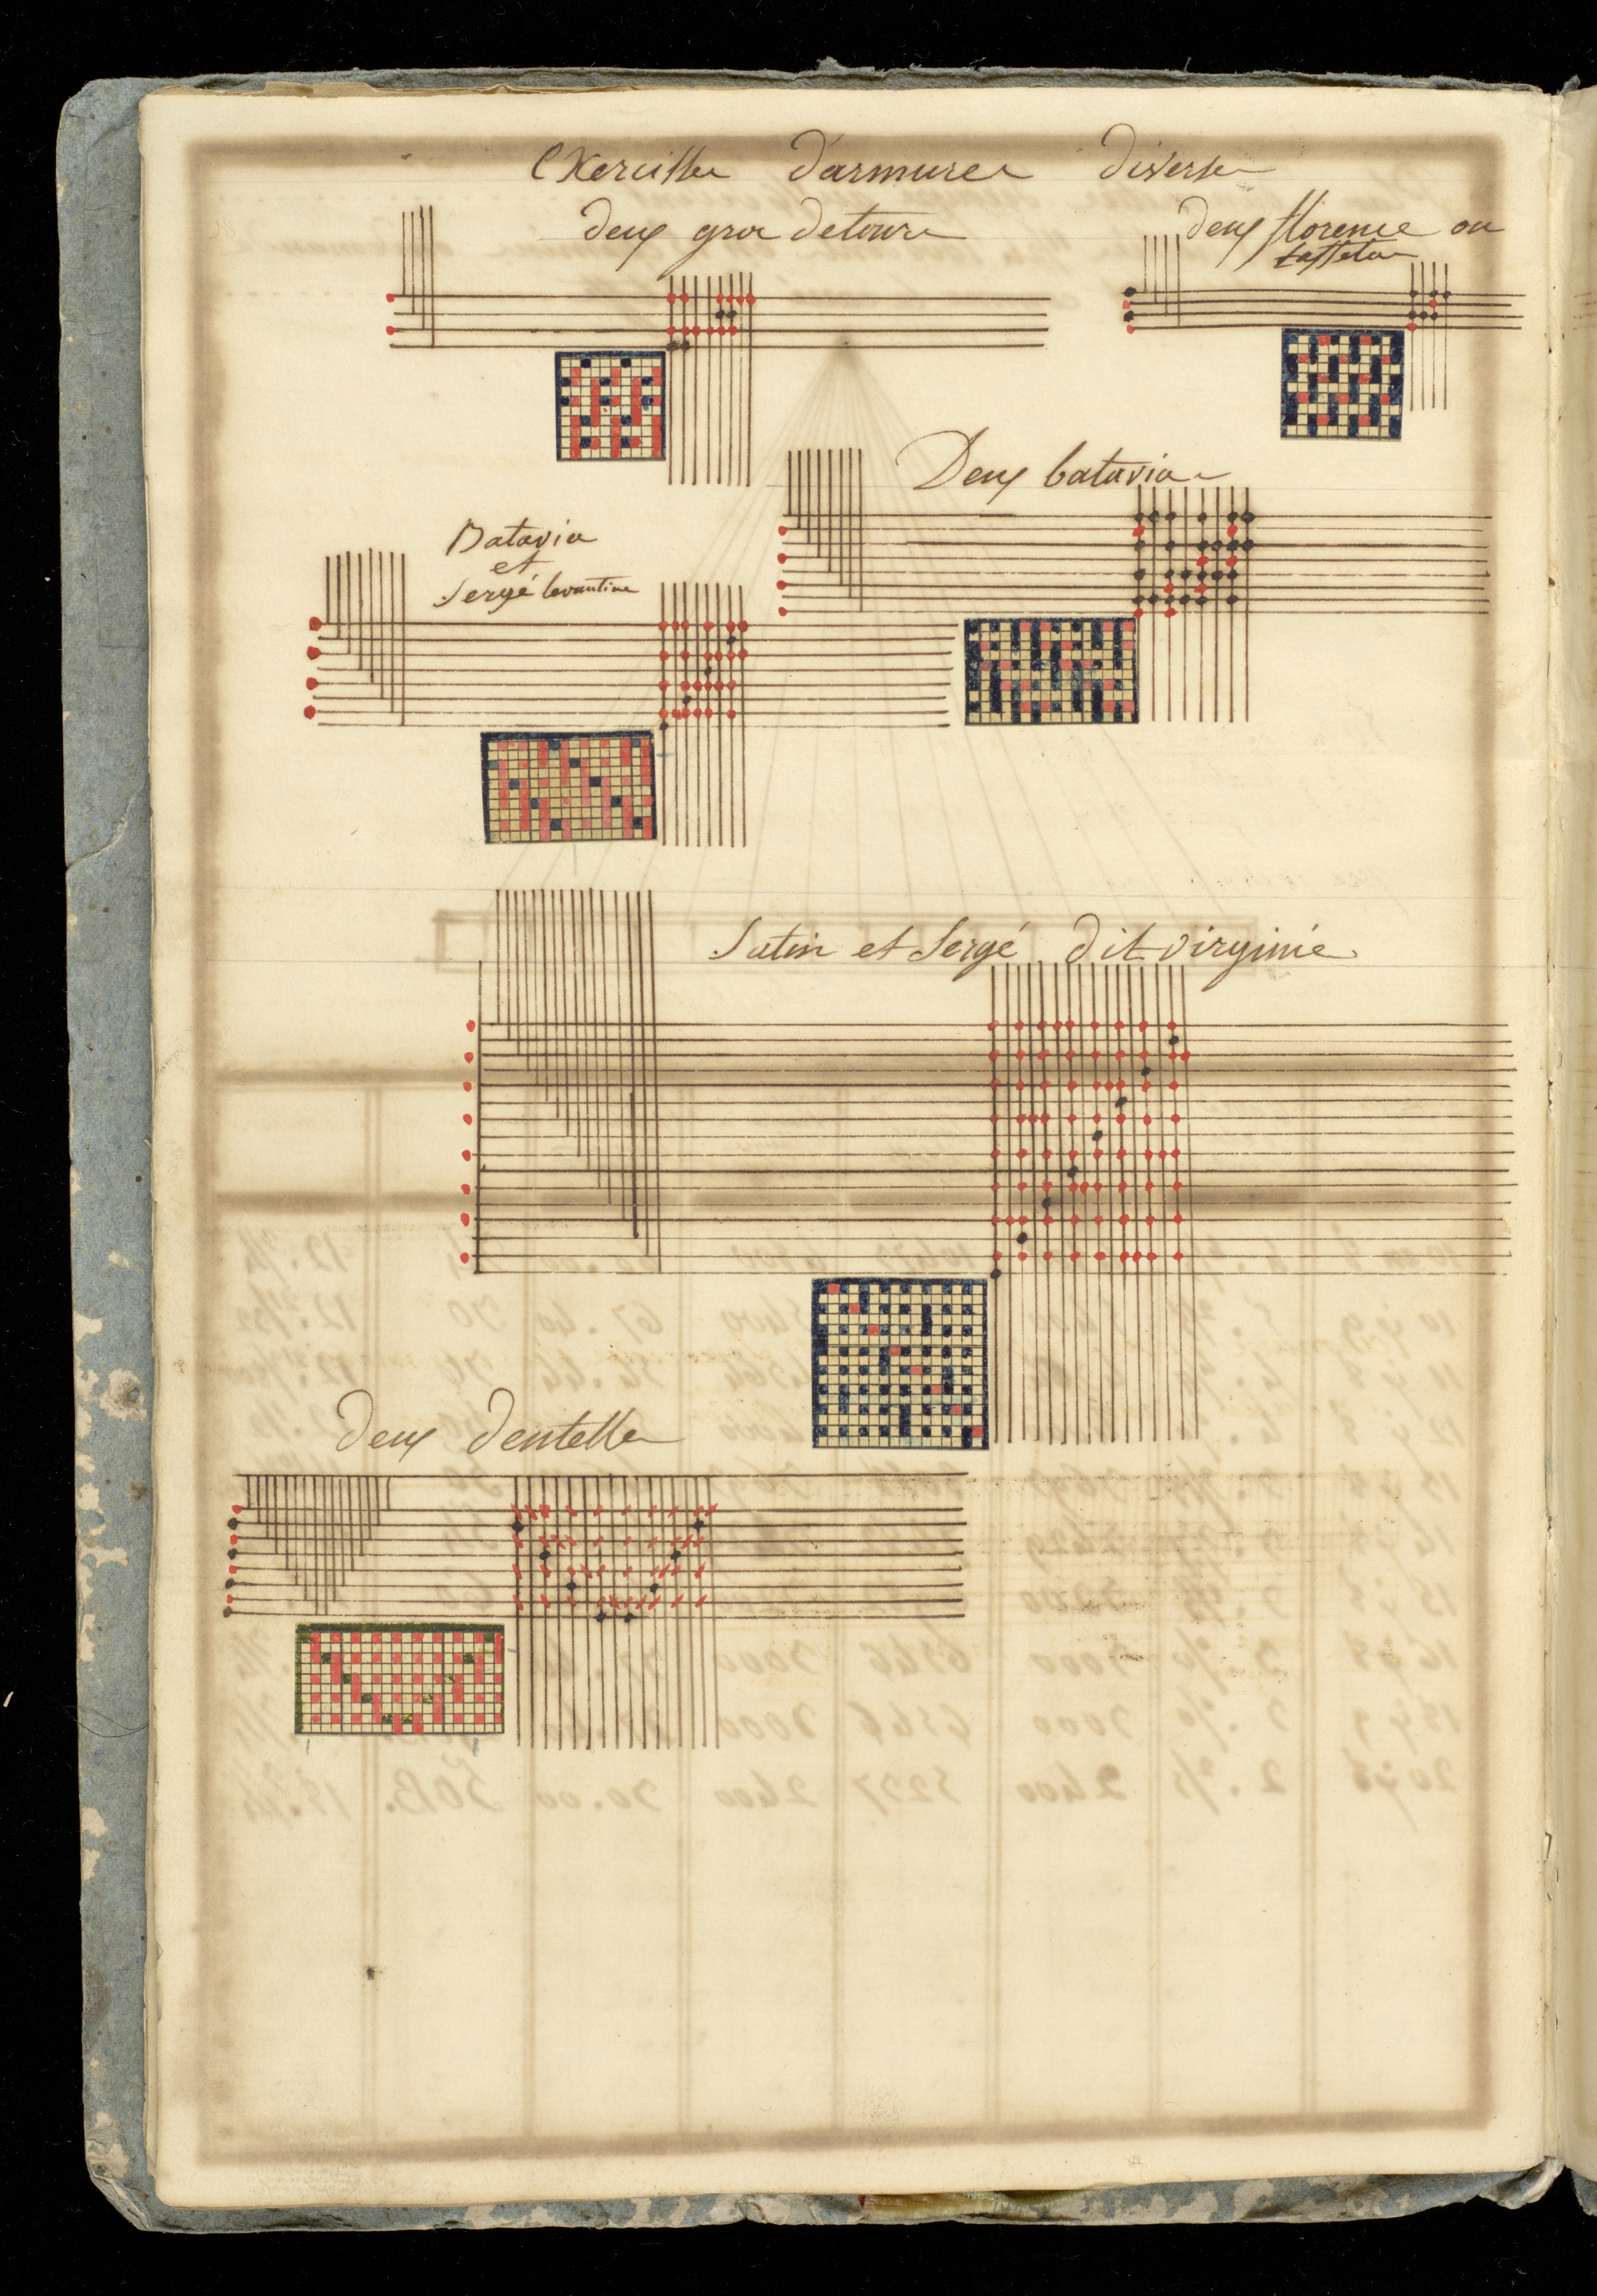 Exercisse d'armures diverse
deux gros detours
deux florence ou
taffetas
Deux batavias
Batavia
et
Sergé levantine
Satin et Sergé dit virginie
deux dentelles